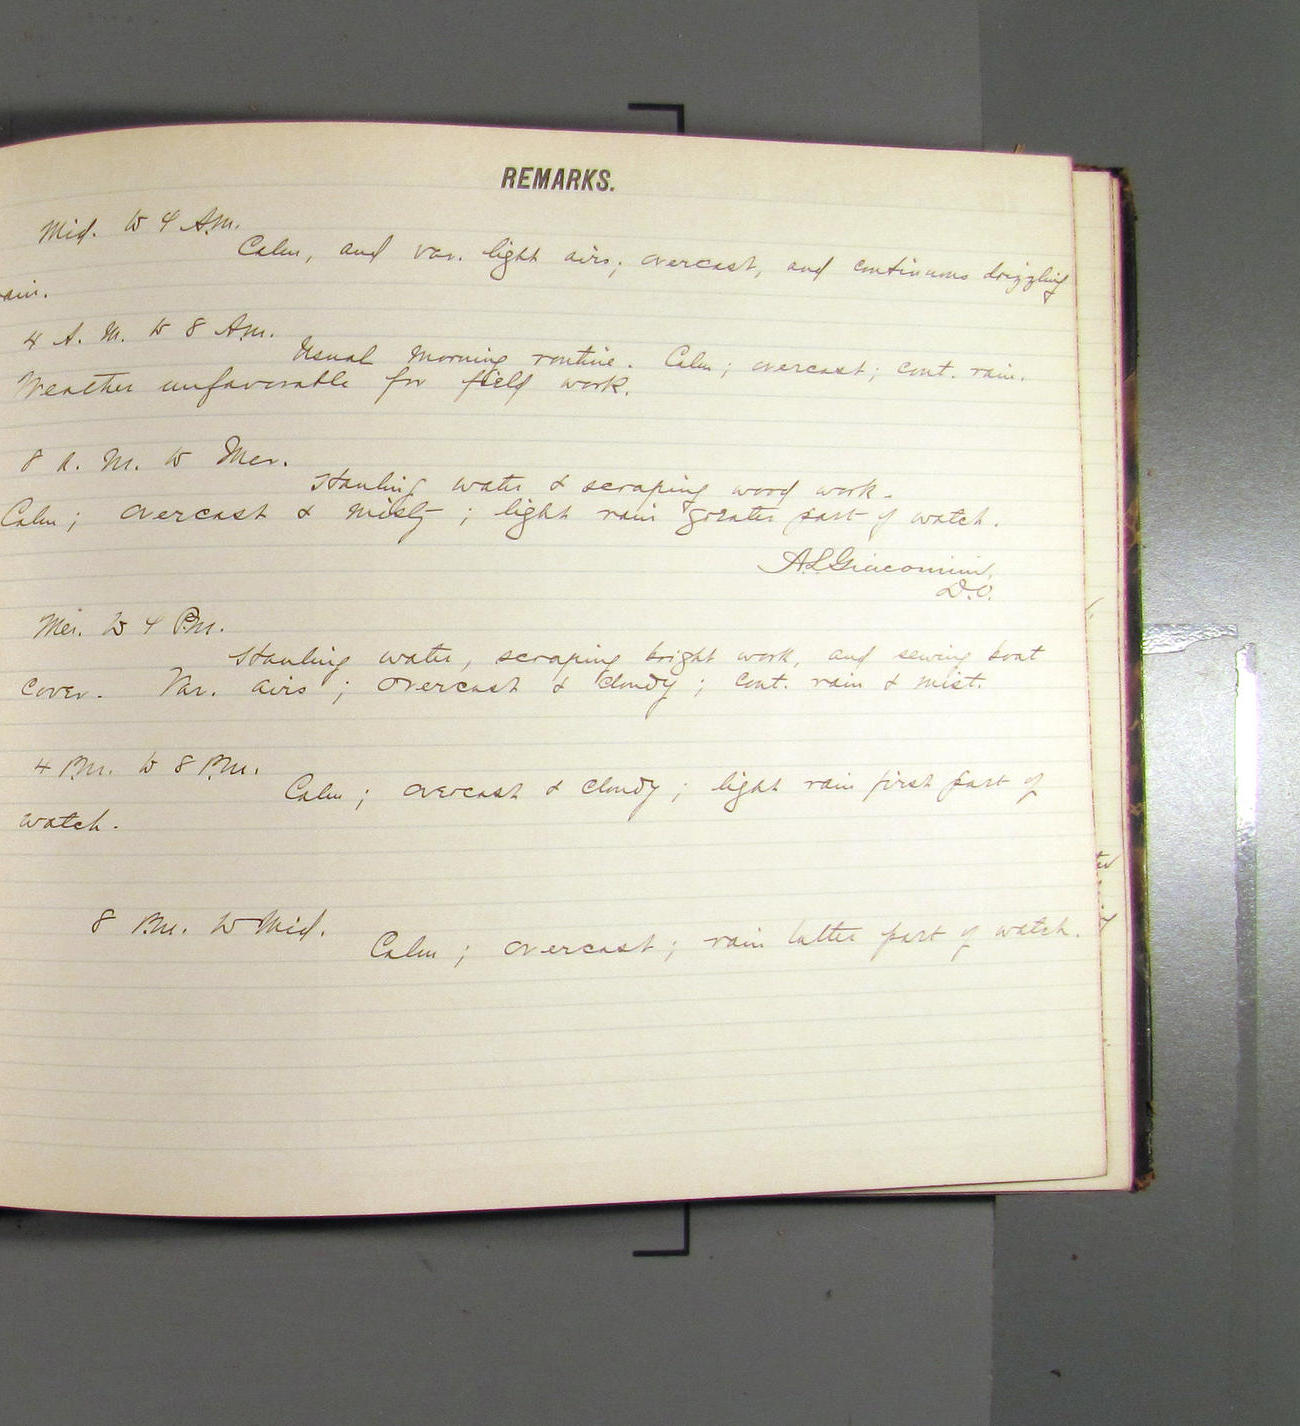 REMARKS.
Mid. to 4 A.M.
Calm, and var. light airs; overcast, and continuous drizzling
rain.
4 A. M. to 8 A.M.
Usual morning routine. Calm; overcast; cont. rain.
Weather unfavorable for field work.
8 A. M. to Mer.
Hauling water & scraping wood work.
Calm; overcast & misty; light rain greater part of watch.
A.L. Giacomini,
D.O.
Mer. to 4 P.M.
Hauling water, scraping bright work, and sewing boat
cover. Var. airs; overcast & cloudy; cont. rain & mist.
4 P.M. to 8 P.M.
Calm; overcast & cloudy; light rain first part of
watch.
8 P.M. to Mid.
Calm; overcast; rain latter part of watch.